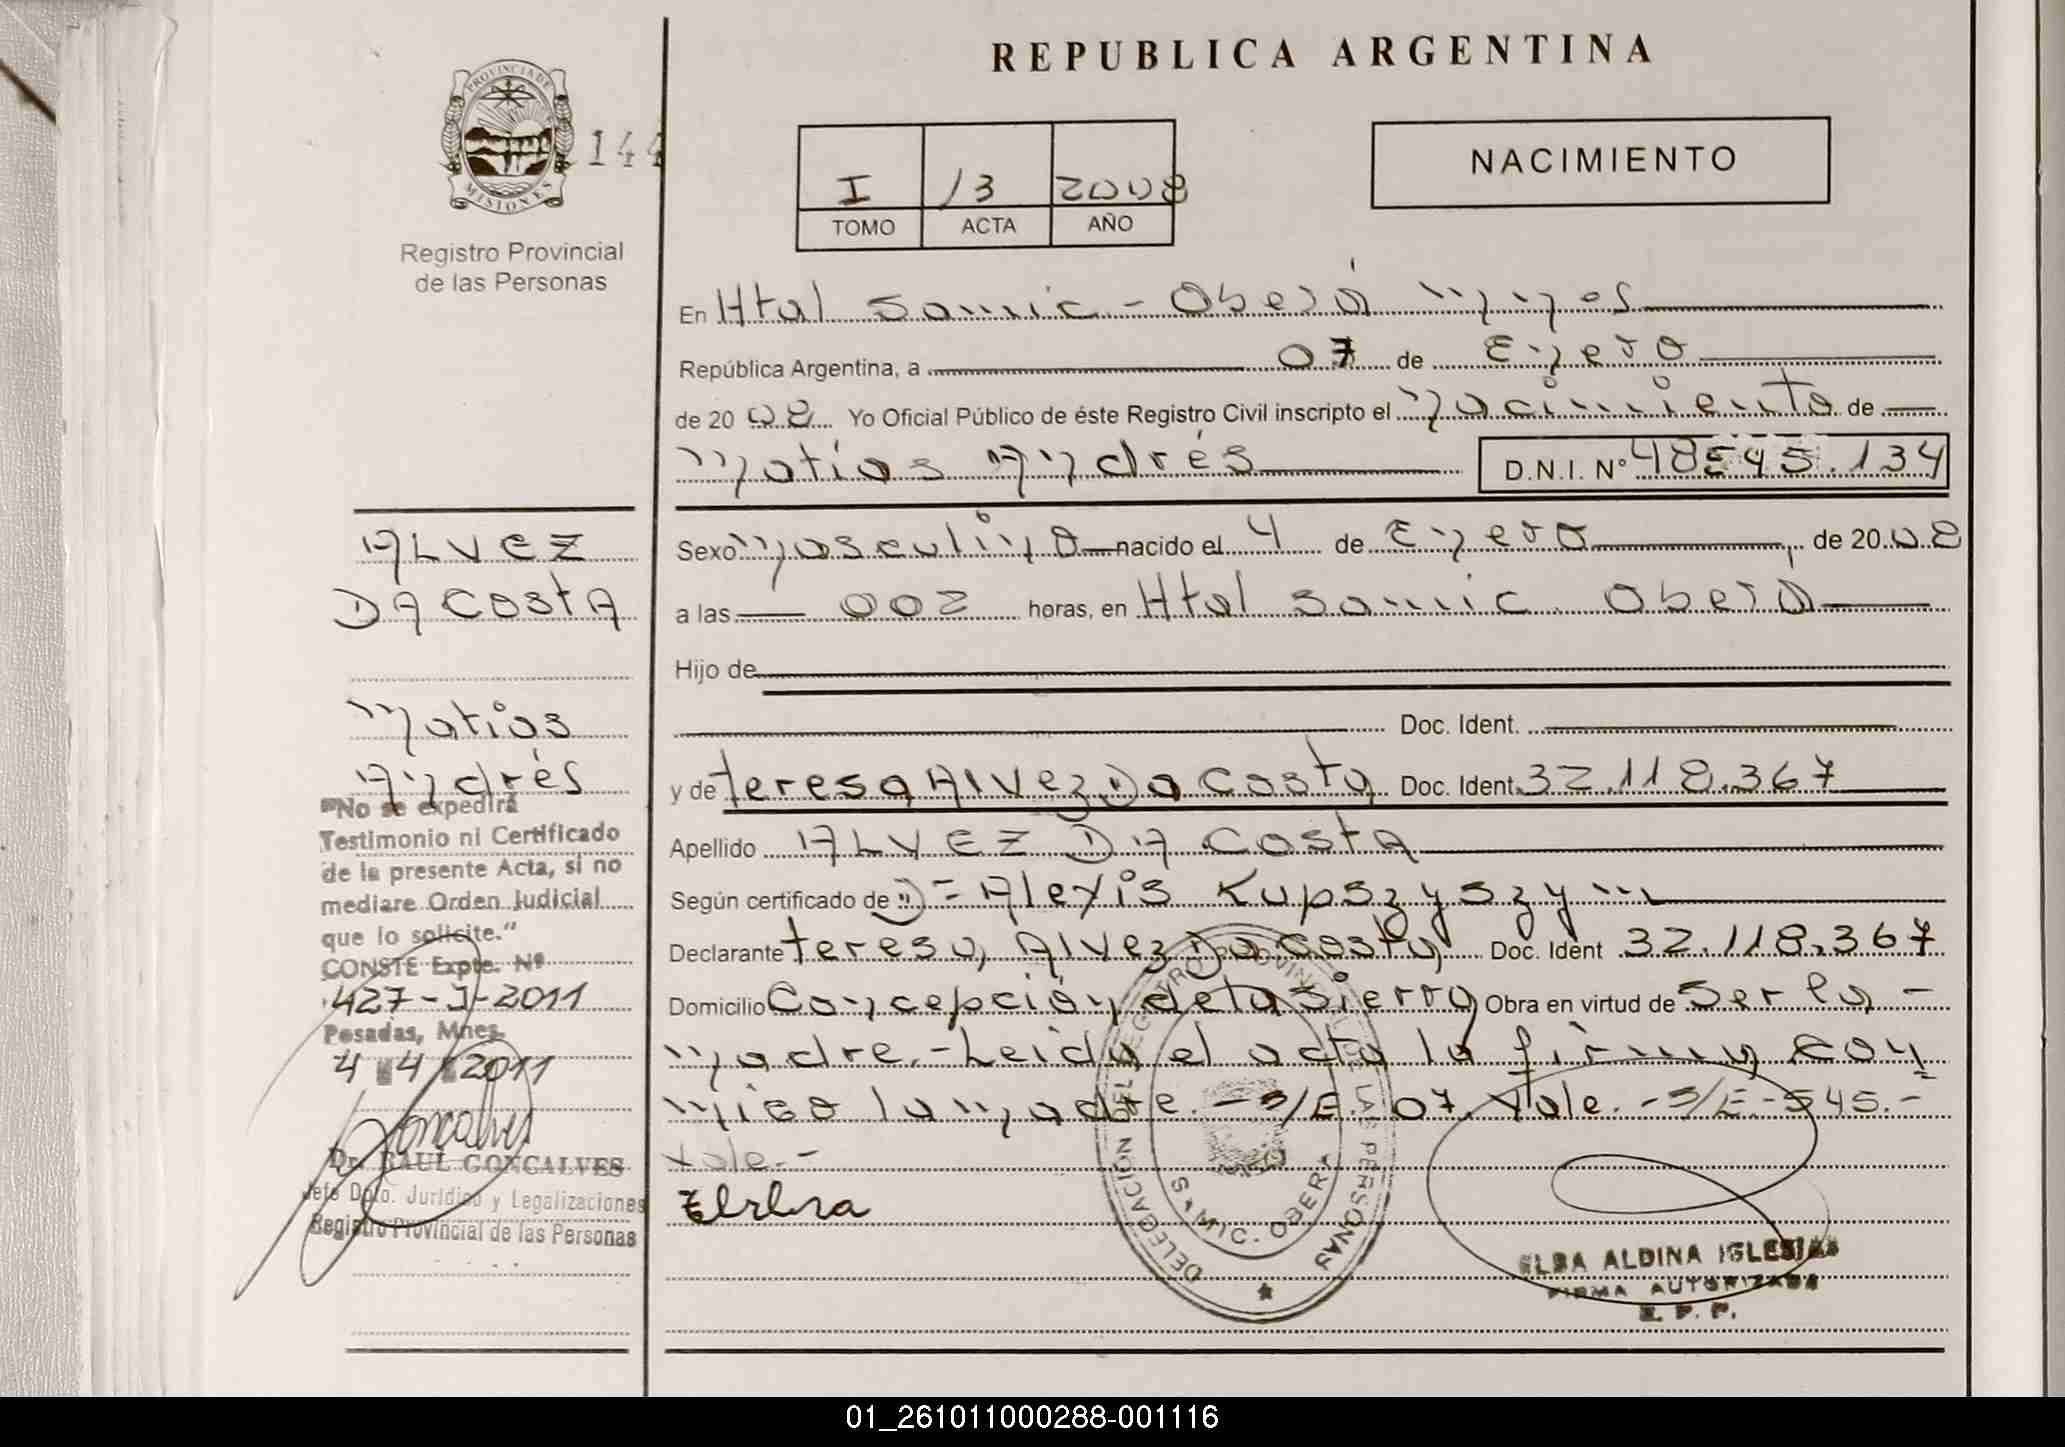 REPUBLICA ARGENTINA
PROVINCIA DE
MISIONES
144
Registro Provincial
de las Personas
I 13 2008
TOMO ACTA AÑO
NACIMIENTO
En Htal Samic - Oberá Mnes
República Argentina, a 07 de Enero
de 2008 Yo Oficial Público de éste Registro Civil inscripto el Nacimiento de
Matias Andrés D.N.I. Nº 48545.134
Sexo Masculino nacido el 4 de Enero de 2008
a las 002 horas, en Htal Samic Oberá
Hijo de
Doc. Ident.
y de teresa Alvez Da Costa Doc. Ident. 32.118.367
Apellido ALVEZ DA COSTA
Según certificado de D= Alexis Kupszyszyn
Declarante teresa Alvez Da Costa Doc. Ident 32.118.367
Domicilio Concepción de la Sierra Obra en virtud de Ser la -
Madre.- Leida el acta la firma con
migo la madre. - S/E. 07. Vale. - S/E.-545.-
Vale.-
ALVEZ
DA COSTA
Matias
Andrés
"No se expedirá
Testimonio ni Certificado
de la presente Acta, si no
mediare Orden Judicial
que lo solicite."
CONSTE Expte. Nº
427-J-2011
Posadas, Mnes.
4 4 2011
Dr. RAUL GONCALVES
Jefe Dpto. Juridico y Legalizaciones
Registro Provincial de las Personas
DELEGACIÓN DEL REGISTRO PROVINCIAL DE LAS PERSONAS
SAMIC. OBERA
ELBA ALDINA IGLESIAS
FIRMA AUTORIZADA
R. P. P.
01_261011000288-001116